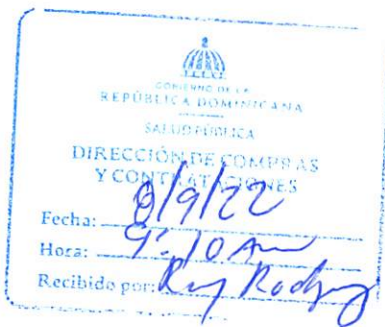 GOBIERNO DE LA
REPÚBLICA DOMINICANA
SALUD PÚBLICA
DIRECCIÓN DE COMPRAS
Y CONTRATACIONES
Fecha: 8/9/22
Hora: 9:10 AM
Recibido por: